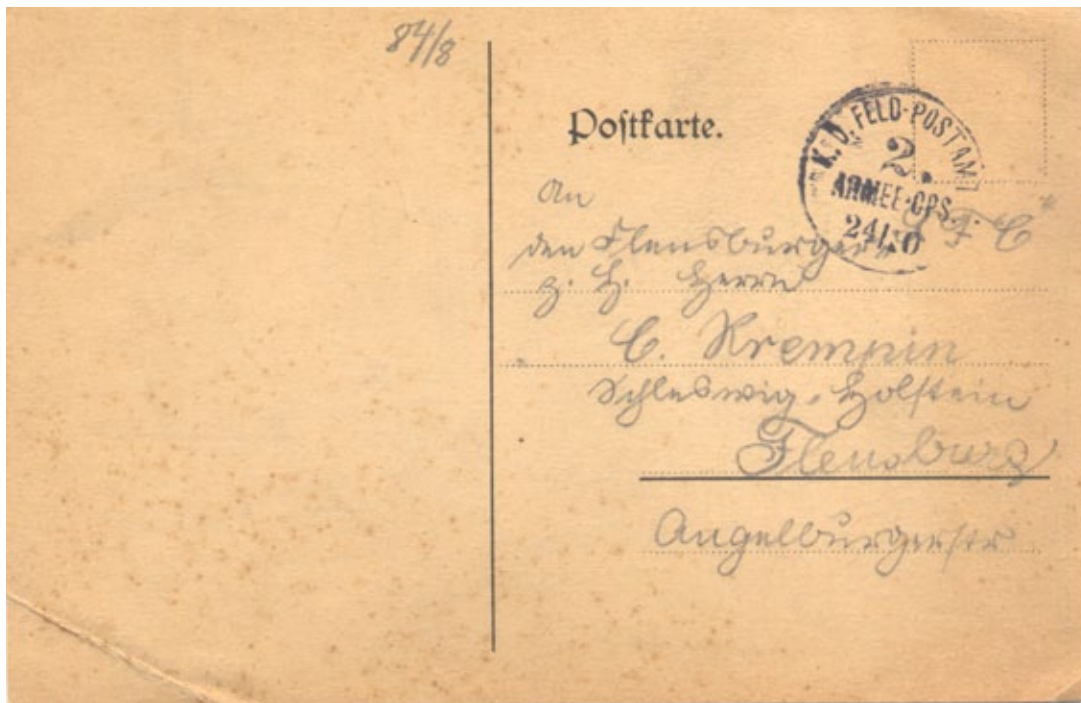 84/8
Postkarte.
K. D. FELD-POSTAMT
2.
ARMEE-CPS.
An
den Flensburger „F C“
z. H. Herrn
C. Krempin
Schleswig-Holstein
Flensburg
Angelburgerstr